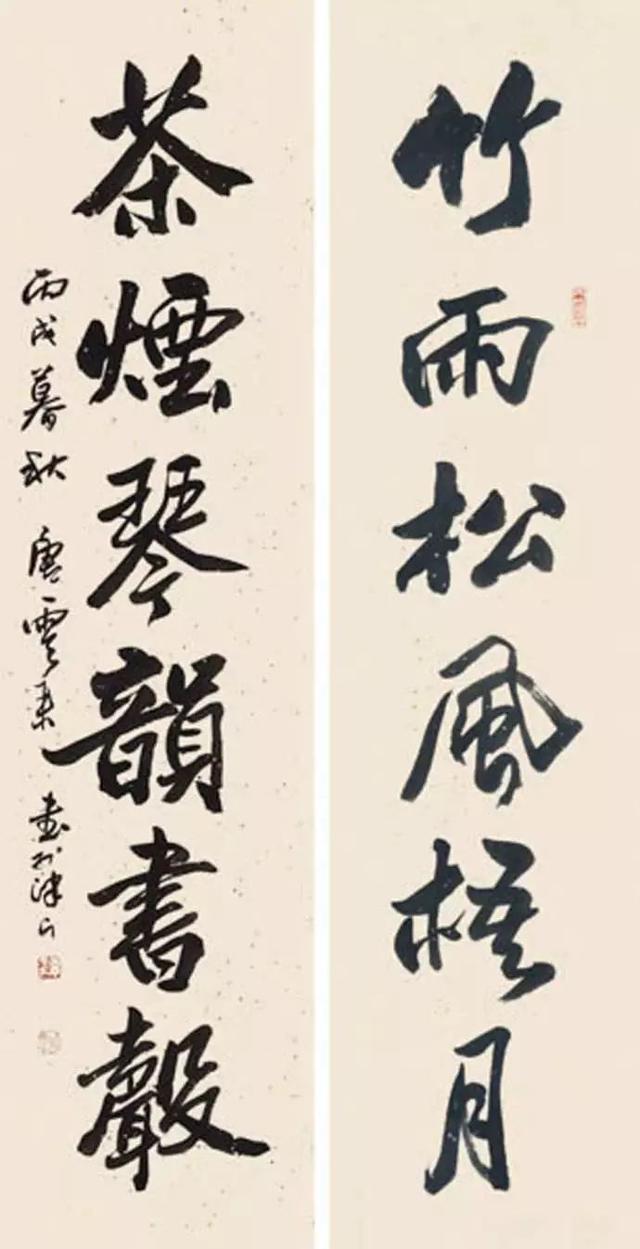 竹雨松風梧月
茶煙琴韻書聲
丙戌暮秋 唐雲来 書於津門